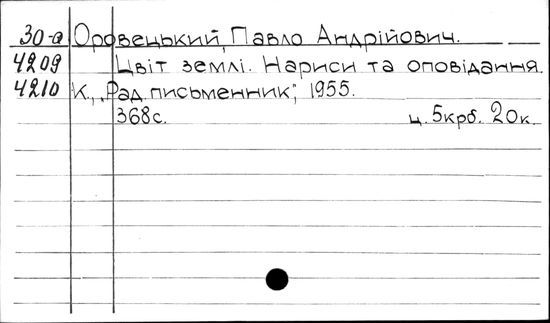 30-а Оровецький, Павло Андрійович.
4209 Цвіт землі. Нариси та оповідання.
4210 К., „Рад. письменник", 1955.
368с. ц. 5крб. 20к.